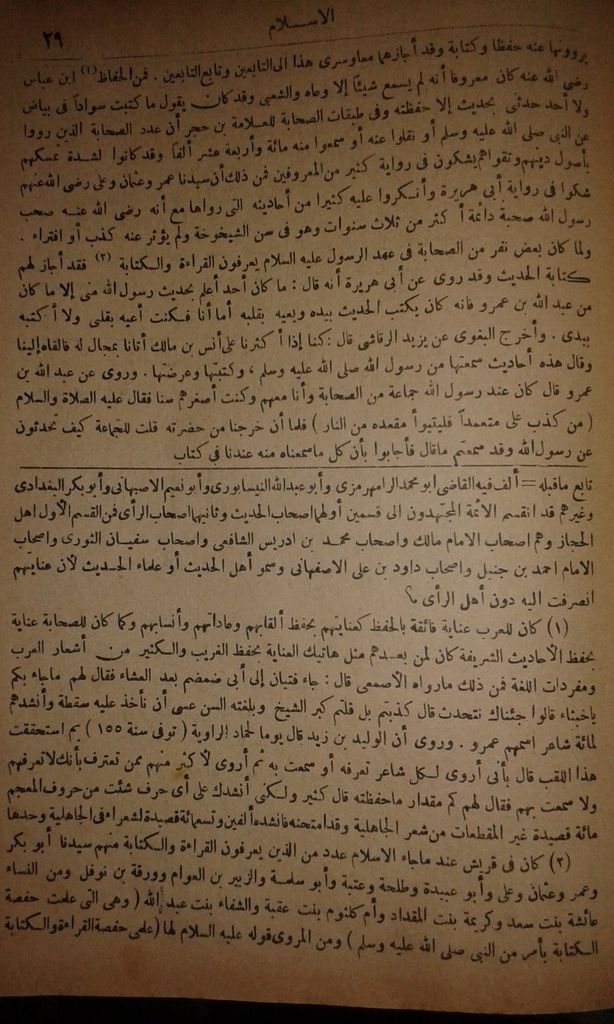 الاسلام
٣٩
يروونها عنه حفظا وكتابة وقد أجازهما معا وسرى هذا الى التابعين وتابع التابعين . فمن الحفاظ (١) ابن عباس
رضى الله عنه كان معروفا أنه لم يسمع شيئا إلا وعاه والشعبى وقد كان يقول ما كتبت سواداً فى بياض
ولا أحد حدثنى بحديث إلا حفظته وفى طبقات الصحابة للعلامة بن حجر أن عدد الصحابة الذين رووا
عن النبى صلى الله عليه وسلم أو نقلوا عنه أو سمعوا منه مائة وأربعة عشر ألفاً وقد كانوا لشدة تمسكهم
بأصول دينهم وتقواهم يشكون فى رواية كثير من المعروفين فمن ذلك أن سيدنا عمر وعثمان وعلى رضى الله عنهم
شكوا فى رواية أبى هريرة وأنكروا عليه كثيرا من أحاديثه التى رواها مع أنه رضى الله عنه صحب
رسول الله صحبة دائمة أكثر من ثلاث سنوات وهو فى سن الشيخوخة ولم يؤثر عنه كذب أو افتراء .
ولما كان بعض نفر من الصحابة فى عهد الرسول عليه السلام يعرفون القراءة والكتابة (٢) فقد أجاز لهم
كتابة الحديث وقد روى عن أبى هريرة أنه قال : ما كان أحد أعلم بحديث رسول الله منى إلا ما كان
من عبد الله بن عمرو فانه كان يكتب الحديث بيده ويعيه بقلبه أما أنا فكنت أعيه بقلبى ولا أكتبه
بيدى . وأخرج البغوى عن يزيد الرقاشى قال : كنا إذا أكثرنا على أنس بن مالك أتانا بمجال له فالقاه إلينا
وقال هذه أحاديث سمعتها من رسول الله صلى الله عليه وسلم ، وكتبتها وعرضتها . وروى عن عبد الله بن
عمرو قال كان عند رسول الله جماعة من الصحابة وأنا معهم وكنت أصغرهم سنا فقال عليه الصلاة والسلام
( من كذب على متعمداً فليتبوأ مقعده من النار ) فلما أن خرجنا من حضرته قلت للجماعة كيف تحدثون
عن رسول الله وقد سمعتم ما قال فأجابوا بأن كل ما سمعناه منه عندنا فى كتاب
تابع ماقبله = ألف فيه القاضى ابو محمد الرامهرمزى وأبو عبد الله النيسابورى وأبو نعيم الاصبهانى وأبو بكر البغدادى
وغيرهم قد انقسم الأئمة المجتهدون الى قسمين أولهما اصحاب الحديث وثانيهما اصحاب الرأى فمن القسم الأول اهل
الحجاز وهم اصحاب الامام مالك واصحاب محمد بن ادريس الشافعى واصحاب سفيان الثورى واصحاب
الامام احمد بن حنبل واصحاب داود بن على الاصفهانى وسمو أهل الحديث أو علماء الحديث لأن عنايتهم
انصرفت اليه دون أهل الرأى
(١) كان للعرب عناية فائقة بالحفظ كعنايتهم بحفظ ألقابهم وعاداتهم وأنسابهم وكما كان للصحابة عناية
بحفظ الأحاديث الشريفة كان لمن بعدهم مثل هاتيك العناية بحفظ الغريب والكثير من أشعار العرب
ومفردات اللغة فمن ذلك مارواه الأصمعى قال : جاء فتيان إلى أبى ضمضم بعد العشاء فقال لهم ماجاء بكم
ياخبثاء قالوا جئناك نتحدث قال كذبتم بل قلتم كبر الشيخ وبلغته السن عسى أن نأخذ عليه سقطة وأنشدهم
لمائة شاعر اسمهم عمرو . وروى أن الوليد بن زيد قال يوما لحماد الراوية ( توفى سنة ١٥٥ ) بم استحققت
هذا اللقب قال بأنى أروى لكل شاعر تعرفه أو سمعت به ثم أروى لأكثر منهم ممن تعترف بأنك لاتعرفهم
ولا سمعت بهم فقال لهم كم مقدار ماحفظته قال كثير ولكنى أنشدك على أى حرف شئت من حروف المعجم
مائة قصيدة غير المقطعات من شعر الجاهلية وقد امتحنه فانشده ألفين وتسعمائة قصيدة لشعراء فى الجاهلية وحدها
(٢) كان فى قريش عند ماجاء الاسلام عدد من الذين يعرفون القراءة والكتابة منهم سيدنا أبو بكر
وعمر وعثمان وعلى وأبو عبيدة وطلحة وعتبة وأبو سلمة والزبير بن العوام وورقة بن نوفل ومن النساء
عائشة بنت سعد وكريمة بنت المقداد وأم كلثوم بنت عقبة والشفاء بنت عبد الله ( وهى التى علمت حفصة
الكتابة بأمر من النبى صلى الله عليه وسلم ) ومن المروى قوله عليه السلام لها ( علمى حفصة القراءة والكتابة